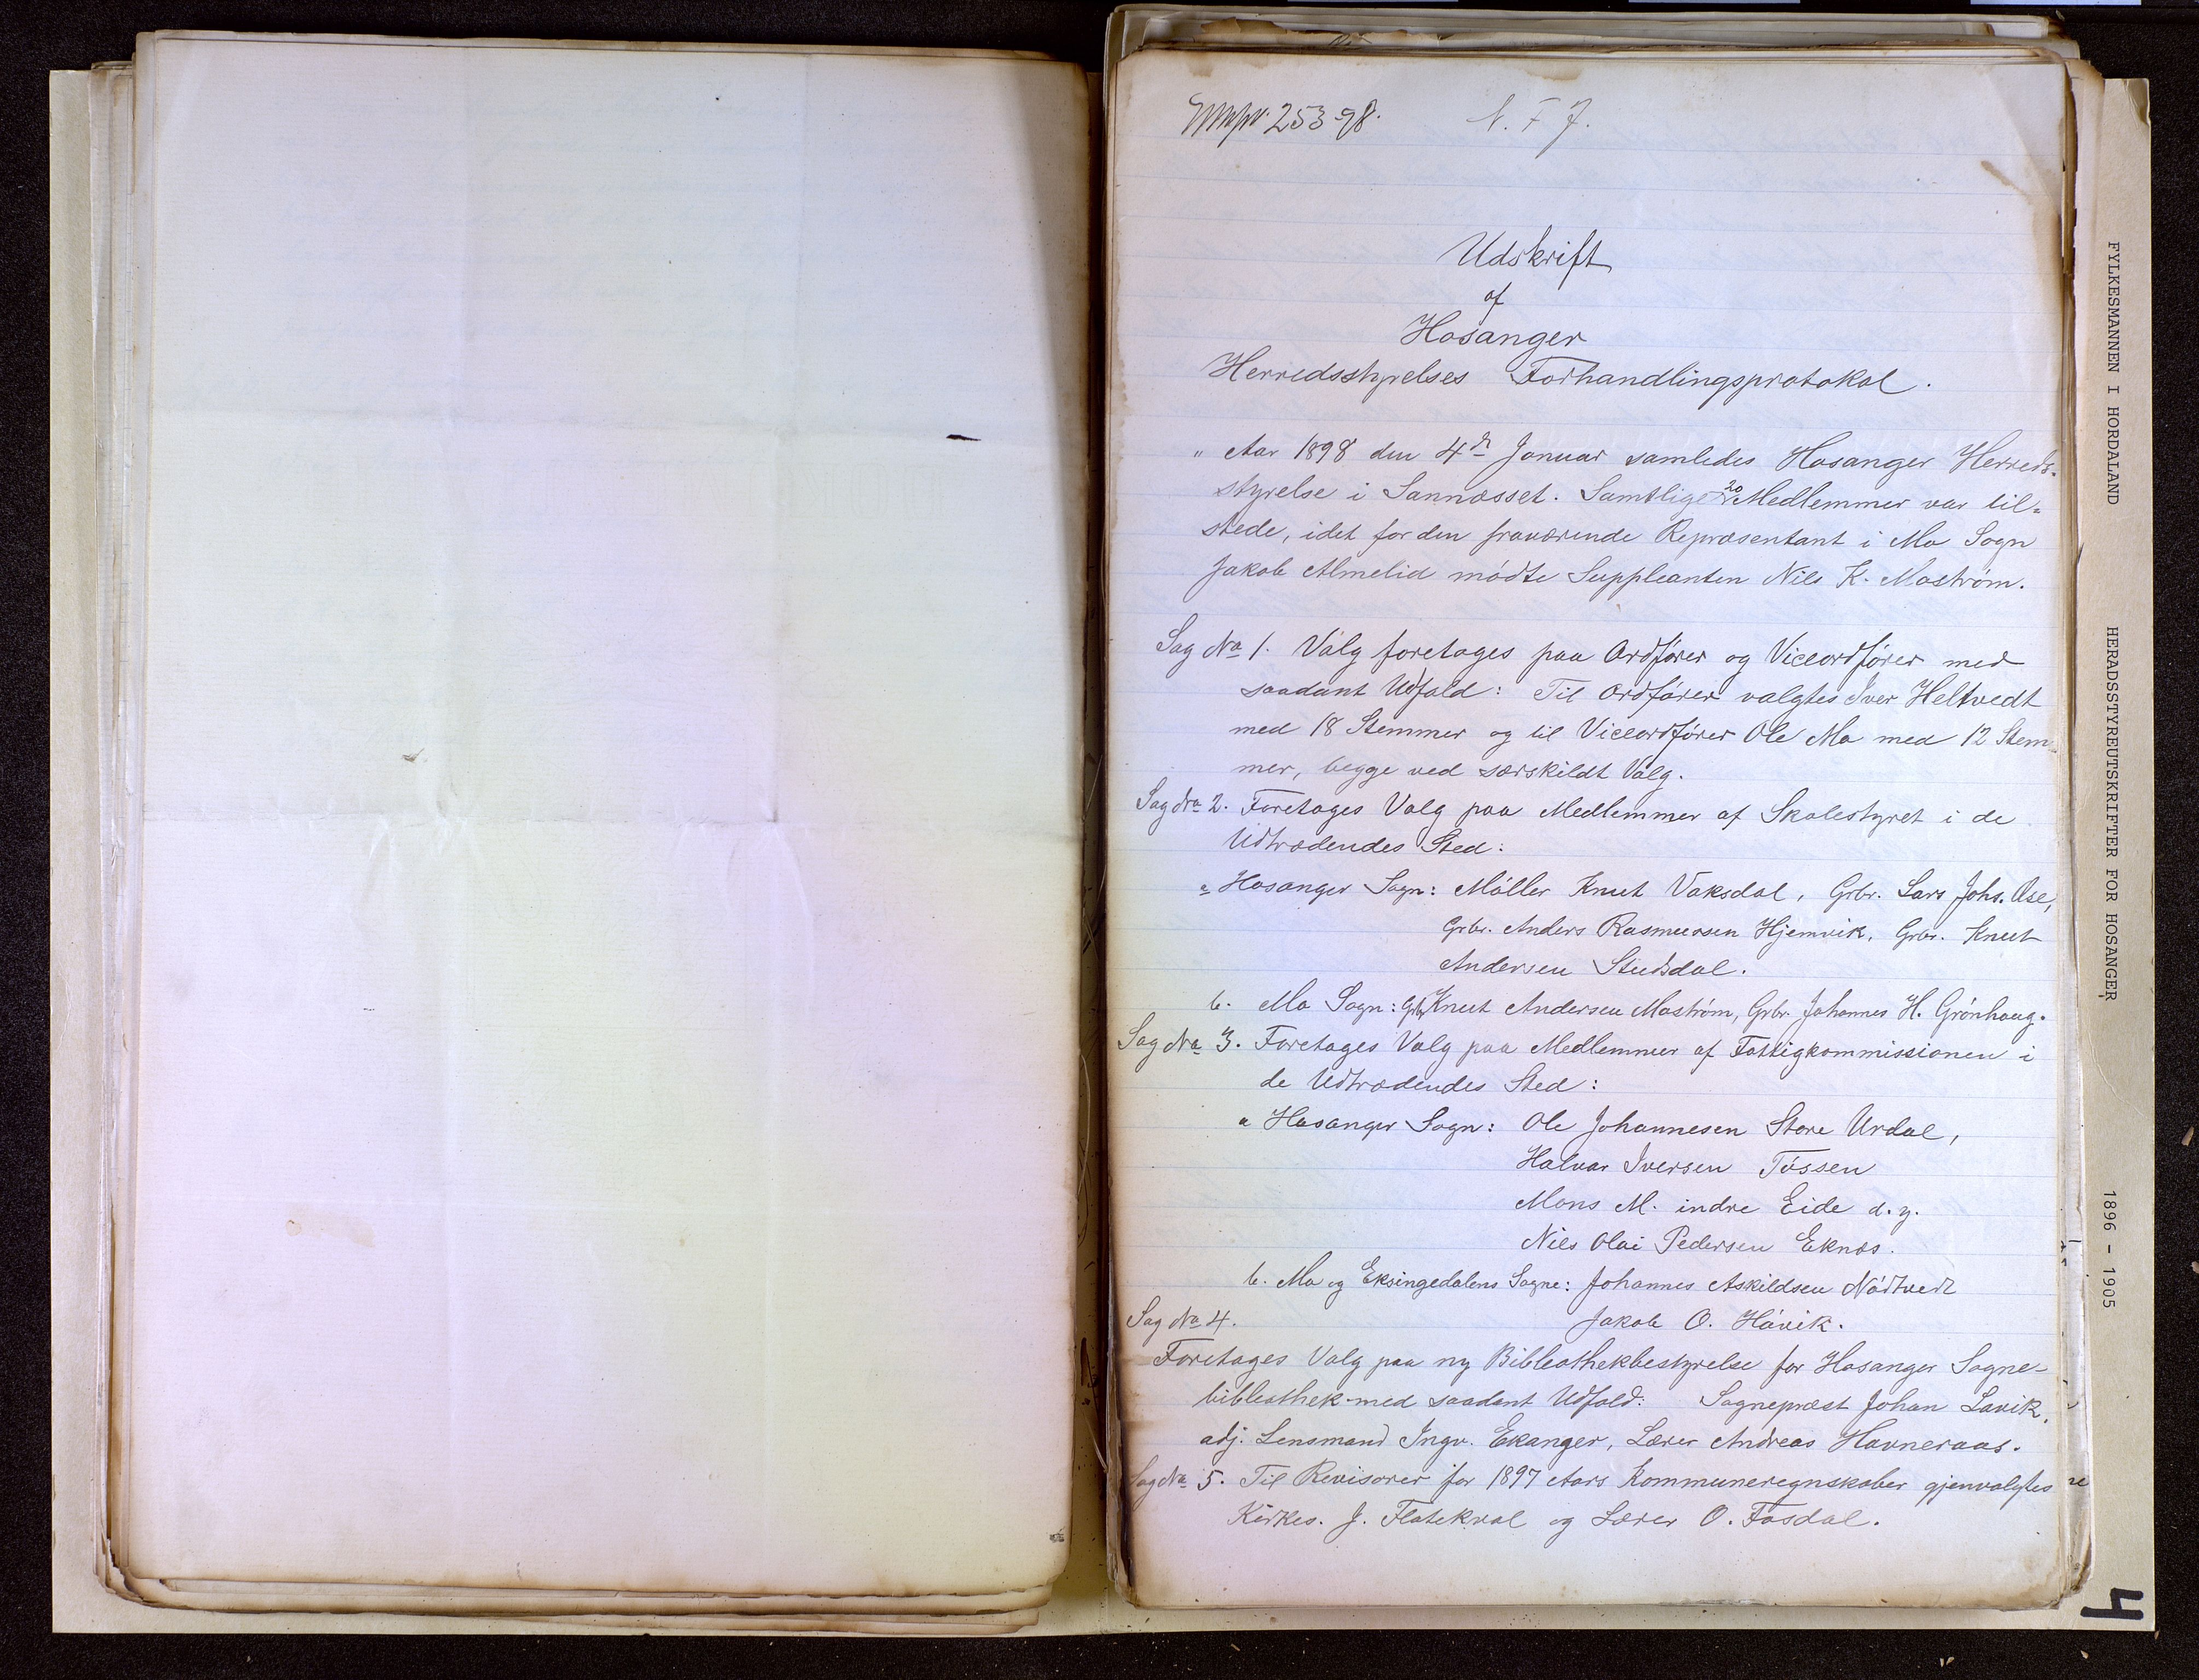 253-98. N. F 7.
Udskrift
af
Hosanger
Herredsstyrelses Forhandlingsprotokol.
" Aar 1898 den 4de Januar samledes Hosanger Herreds-
styrelse i Sannæsset. Samtlige 20 Medlemmer var til-
stede, idet for den fraværende Repræsentant i Mo Sogn
Jakob Almelid mødte Suppleanten Nils K. Mostrøm.
Sag No 1. Valg foretages paa Ordfører og Viceordfører med
saadant Udfald: Til Ordfører valgtes Iver Heltvedt
med 18 Stemmer og til Viceordfører Ole Mo med 12 Stem-
mer, begge ved særskildt Valg.
Sag No 2. Foretages Valg paa Medlemmer af Skolestyret i de
Udtrædendes Sted:
a Hosanger Sogn: Møller Knut Vaksdal, Grbr. Lars Johs. Ase,
Grbr. Anders Rasmussen Hjemvik, Grbr. Knut
Andersen Studsdal.
b. Mo Sogn: Grbr Knut Andersen Mostrøm, Grbr. Johannes H. Grønhaug.
Sag No 3. Foretages Valg paa Medlemmer af Fattigkommissionen i
de Udtrædendes Sted:
a Hosanger Sogn: Ole Johannesen Store Urdal,
Halvar Iversen Tøssen
Mons M. indre Eide d. y.
Nils Olai Pedersen Eknæs.
b. Mo og Eksingedalens Sogne: Johannes Askildsen Nødtvedt
Sag No 4. Jakob O. Høvik.
Foretages Valg paa ny Bibliothekbestyrelse for Hosanger Sogne-
bibliothek med saadant Udfald: Sogneprest Johan Lavik,
adj. Lensmand Ingv. Ekanger, Lærer Andreas Havneraas.
Sag No 5. Til Revisorer for 1897 Aars Kommuneregnskaber gjenvalgtes
Kirkes. J. Flatekval og Lærer O. Fosdal.
FYLKESMANNEN I HORDALAND HERADSSTYREUTSKRIFTER FOR HOSANGER 1896 - 1905
4